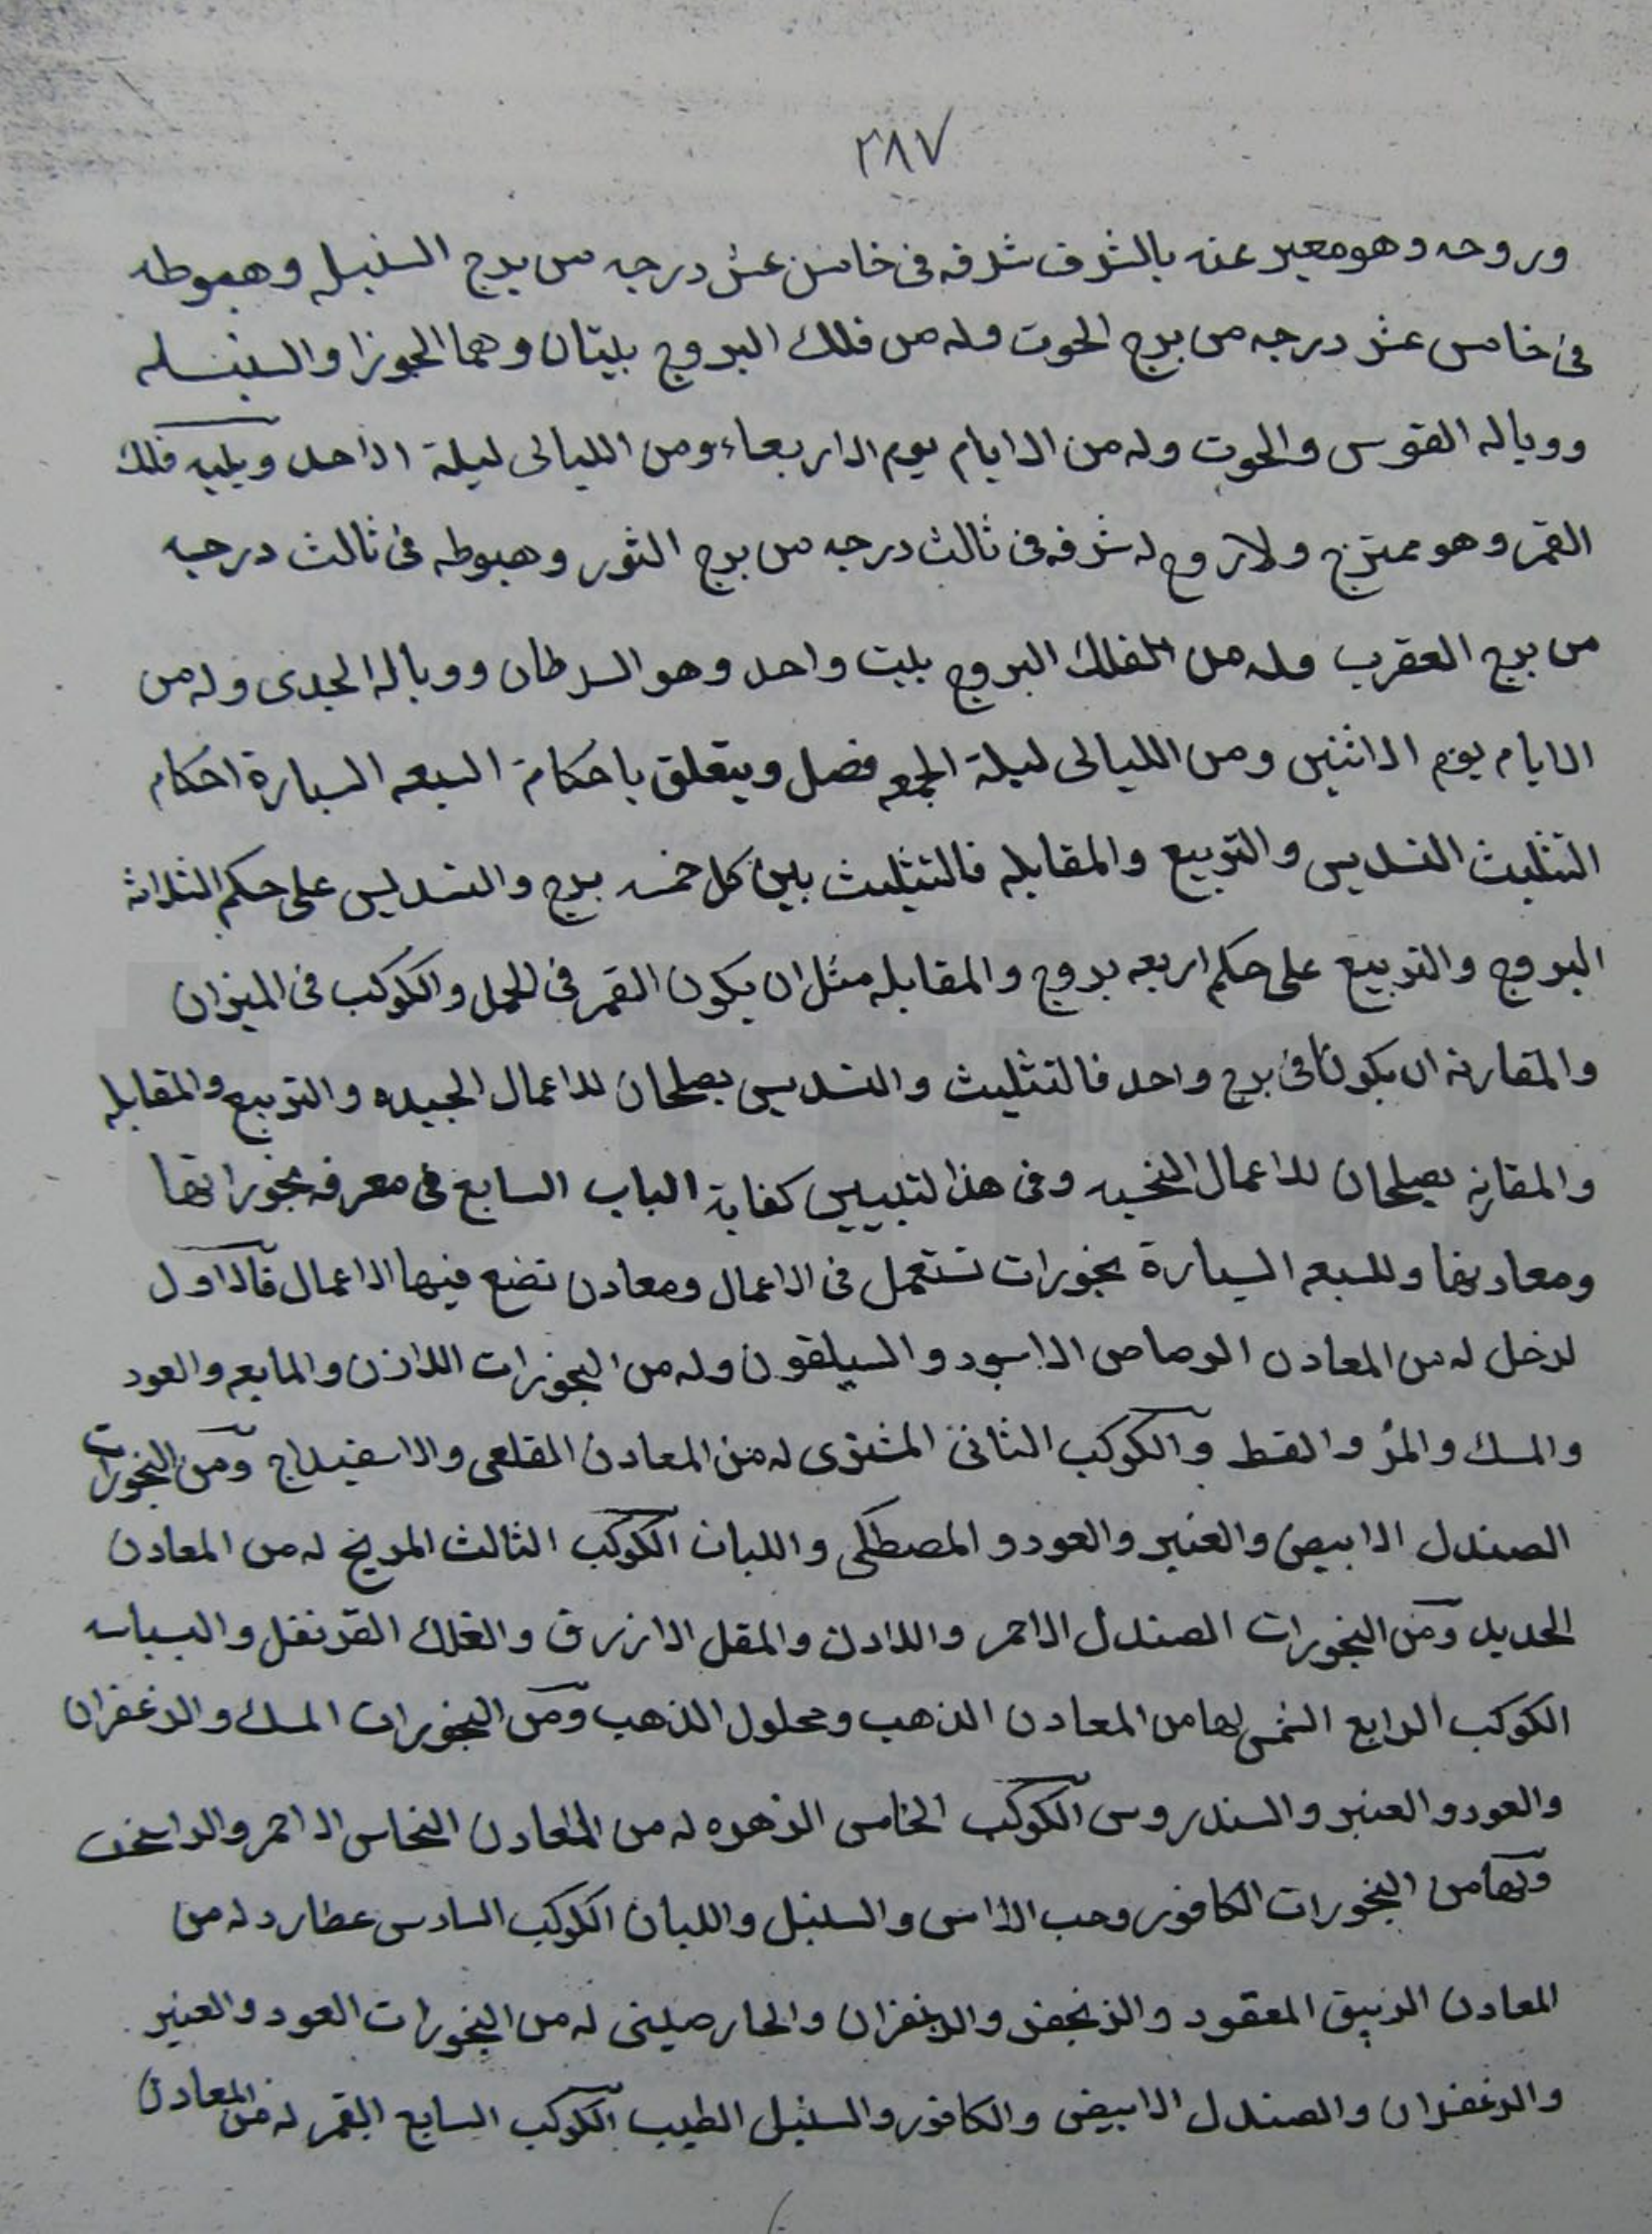 ٢٨٧
وروحه وهو معبر عنه بالشرف شرفه فى خامس عشر درجه من برج السنبله وهبوطه
فى خامس عشر درجه من برج الحوت وله من فلك البروج بيتان وهما الجوزا والسنبله
ووباله القوس والحوت وله من الايام يوم الاربعاء ومن الليالى ليلة الاحد ويليه فلك
القمر وهو ممتزج ولا زوج له شرفه فى ثالث درجه من برج الثور وهبوطه فى ثالث درجه
من برج العقرب وله من الفلك البروج بيت واحد وهو السرطان ووباله الجدى وله من
الايام يوم الاثنين ومن الليالى ليلة الجمعه فصل ويتعلق باحكام السبعه السيارة احكام
التثليث التسديس والتربيع والمقابله فالتثليث بين كل خمسه برج والتسديس على حكم الثلاثه
البروج والتربيع على حكم اربعه بروج والمقابله مثل ان يكون القمر فى الحمل والكوكب فى الميزان
والمقارنه ان يكونا فى برج واحد فالتثليث والتسديس يصلحان للاعمال الجيده والتربيع والمقابله
والمقارنه يصلحان للاعمال النحسيه وفى هذا لتبيين كفاية الباب السابع فى معرفه بخوراتها
ومعادنها وللسبعه السيارة بخورات تستعمل فى الاعمال ومعادن تضع فيها الاعمال فالاول
لزحل له من المعادن الرصاص الاسود والسيلقون وله من البخورات اللاذن والمايعه والعود
والمسك والمر والقسط والكوكب الثانى المشترى له من المعادن القلعى والاسفيداج ومن البخورات
الصندل الابيض والعنبر والعود والمصطكى واللبان الكوكب الثالث المريخ له من المعادن
الحديد ومن البخورات الصندل الاحمر واللادن والمقل الازرق والعلك القرنفل والبسباسه
الكوكب الرابع الشمس لها من المعادن الذهب ومحلول الذهب ومن البخورات المسك والزعفران
والعود والعنبر والسندروس الكوكب الخامس الزهره له من المعادن النحاس الاحمر
ولها من البخورات الكافور وحب الاس والسنبل واللبان الكوكب السادس عطارد له من
المعادن الزيبق المعقود والزنجفر والزعفران والخارصينى له من البخورات العود والعنبر
والزعفران والصندل الابيض والكافور والسنبل الطيب الكوكب السابع القمر له من المعادن